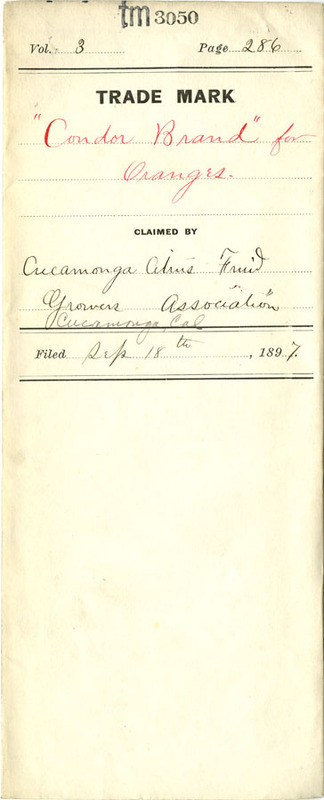 tm 3050
Vol. 3 Page 286
TRADE MARK
"Condor Brand" for
Oranges.
CLAIMED BY
Cucamonga Citrus Fruid
Growers Association
Cucamonga, Cal
Filed Sep 18th, 1897.